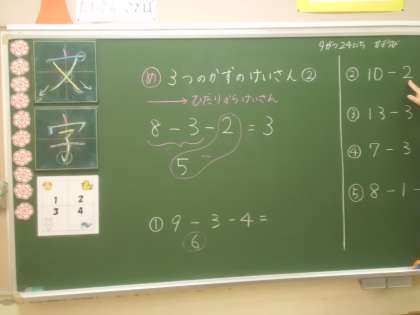 9がつ24にち
文
字
1 2
3 4
め 3つのかずのけいさん②
ひだりからけいさん
8-3-2=3
5
① 9-3-4=
6
② 10-2
③ 13-3
④ 7-3
⑤ 8-1